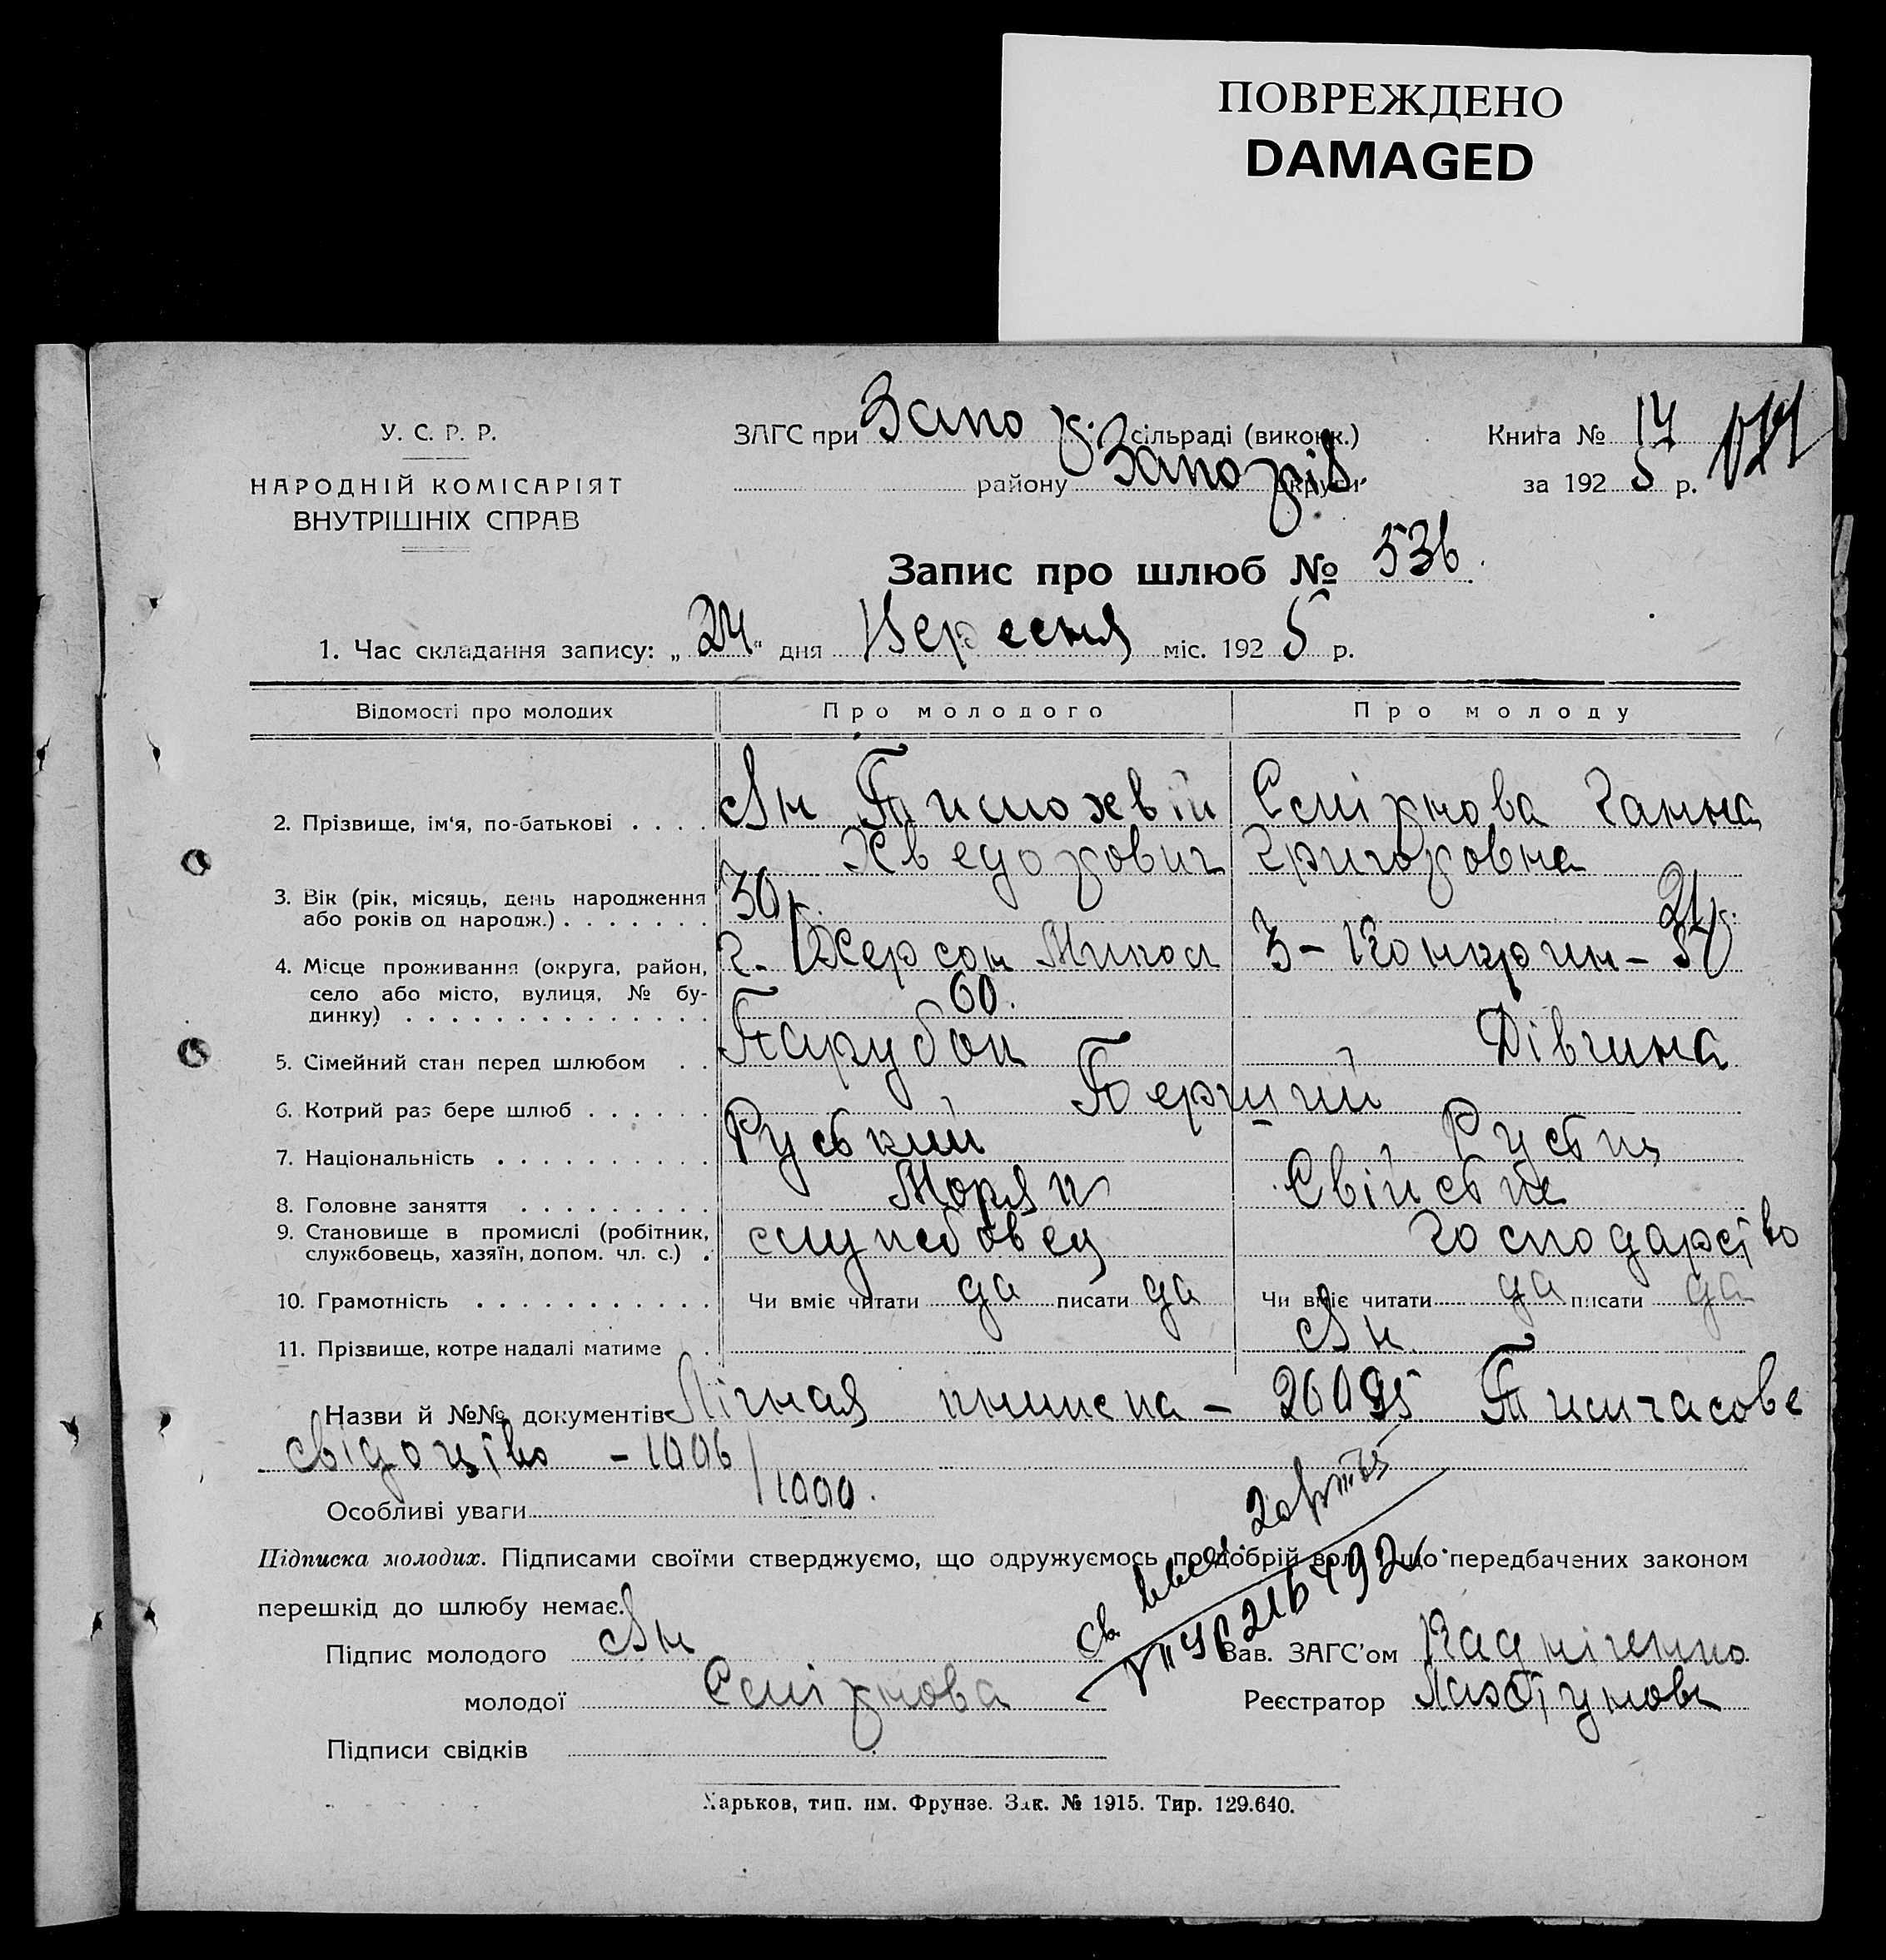 ПОВРЕЖДЕНО
DAMAGED
У. С. Р. Р.
НАРОДНІЙ КОМІСАРІЯТ
ВНУТРІШНІХ СПРАВ
ЗАГС при Запор. сільраді (виконк.)
району Запоріз. округи
Книга № 14
за 1925 р.
Запис про шлюб № 536.
1. Час складання запису: „24" дня Вересня міс. 1925 р.
Відомості про молодих Про молодого Про молоду
2. Прізвище, ім'я, по-батькові . . . . Ян Тимохвій Смірнова Ганна
Хведорович Григоровна
3. Вік (рік, місяць, день народження 30 р.
або років од народж.) . . . . . . . 21 р.
4. Місце проживання (округа, район, г. Херсон Микол 3-
село або місто, вулиця, № бу- 60.
динку) . . . . . . . . . . . . . .
5. Сімейний стан перед шлюбом . . Парубок Дівчина
6. Котрий раз бере шлюб . . . . . . Перший
7. Національність . . . . . . . . . . Руський Руська
8. Головне заняття . . . . . . . . . Моряк Свійське
9. Становище в промислі (робітник, службовец господарство
службовець, хазяїн, допом. чл. с.) .
10. Грамотність . . . . . . . . . . . Чи вміє читати да писати да Чи вміє читати да писати да
11. Прізвище, котре надалі матиме . Ян
Назви й №№ документів Лічная книжка – 26095 Тимчасове
свідоцтво – 1006/1000.
Особливі уваги
Підписка молодих. Підписами своїми стверджуємо, що одружуємось по добрій волі і що передбачених законом
перешкід до шлюбу немає.
Підпис молодого Ян
Зав. ЗАГС'ом
молодої Смірнова
Реєстратор
Підписи свідків
Харьков, тип. им. Фрунзе. Зак. № 1915. Тир. 129.640.